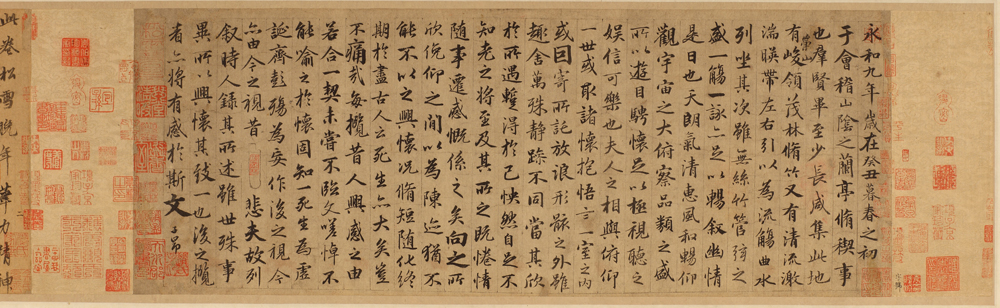 永和九年歲在癸丑暮春之初
于會稽山陰之蘭亭脩禊事
也羣賢畢至少長咸集此地
有崇山峻領茂林脩竹又有清流激
湍暎帶左右引以為流觴曲水
列坐其次雖無絲竹管弦之
盛一觴一詠亦足以暢叙幽情
是日也天朗氣清惠風和暢仰
觀宇宙之大俯察品類之盛
所以遊目騁懷足以極視聽之
娛信可樂也夫人之相與俯仰
一世或取諸懷抱悟言一室之內
或因寄所託放浪形骸之外雖
趣舍萬殊靜躁不同當其欣
於所遇蹔得於己怏然自足不
知老之將至及其所之既惓情
隨事遷感慨係之矣向之所
欣俛仰之閒以為陳迹猶不
能不以之興懷況脩短隨化終
期於盡古人云死生亦大矣豈
不痛哉每攬昔人興感之由
若合一契未嘗不臨文嗟悼不
能喻之於懷固知一死生為虛
誕齊彭殤為妄作後之視今
亦由今之視昔悲夫故列
叙時人錄其所述雖世殊事
異所以興懷其致一也後之攬
者亦將有感於斯文
此卷松雪晚年筆力精神